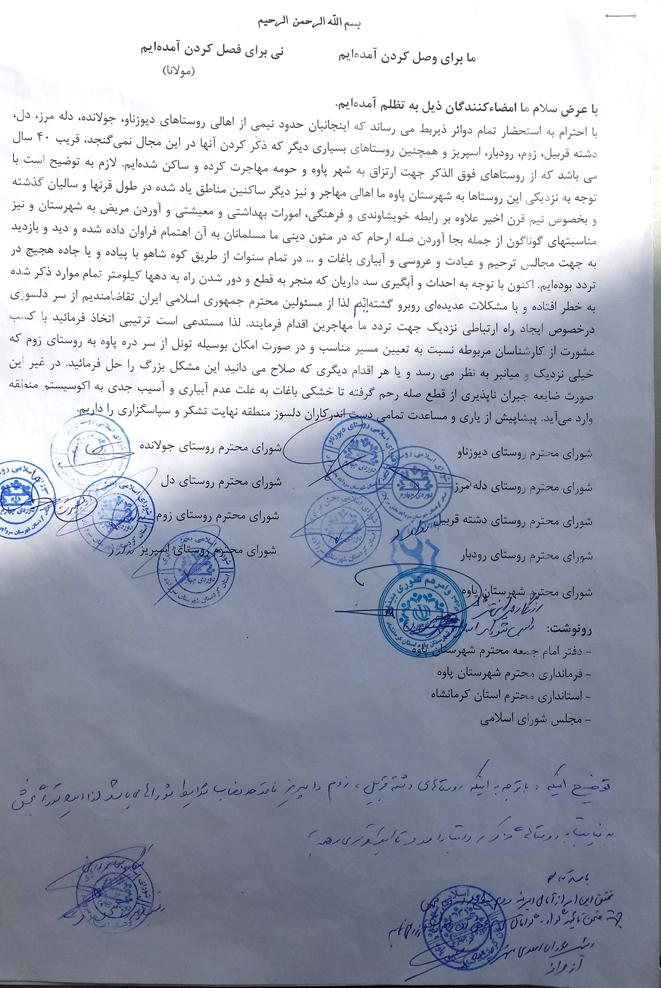 بسم الله الرحمن الرحیم
ما برای وصل کردن آمده‌ایم نی برای فصل کردن آمده‌ایم
(مولانا)
با عرض سلام ما امضاءکنندگان ذیل به تظلم آمده‌ایم.
با احترام به استحضار تمام دوائر ذیربط می رساند که اینجانبان حدود نیمی از اهالی روستاهای دیوزناو، جولانده، دله مرز، دل،
دشته قربیل، زوم، رودبار، اسپریز و همچنین روستاهای بسیاری دیگر که ذکر کردن آنها در این مجال نمی‌گنجد، قریب ۴۰ سال
می باشد که از روستاهای فوق الذکر جهت ارتزاق به شهر پاوه و حومه مهاجرت کرده و ساکن شده‌ایم. لازم به توضیح است با
توجه به نزدیکی این روستاها به شهرستان پاوه ما اهالی مهاجر و نیز دیگر ساکنین مناطق یاد شده در طول قرنها و سالیان گذشته
و بخصوص نیم قرن اخیر علاوه بر رابطه خویشاوندی و فرهنگی، امورات بهداشتی و معیشتی و آوردن مریض به شهرستان و نیز
مناسبتهای گوناگون از جمله بجا آوردن صله ارحام که در متون دینی ما مسلمانان به آن اهتمام فراوان داده شده و دید و بازدید
به جهت مجالس ترحیم و عیادت و عروسی و آبیاری باغات و ... در تمام سنوات از طریق کوه شاهو با پیاده و یا جاده هجیج در
تردد بوده‌ایم. اکنون با توجه به احداث و آبگیری سد داریان که منجر به قطع و دور شدن راه به دهها کیلومتر تمام موارد ذکر شده
به خطر افتاده و با مشکلات عدیده‌ای روبرو گشته‌ایم لذا از مسئولین محترم جمهوری اسلامی ایران تقاضامندیم از سر دلسوزی
درخصوص ایجاد راه ارتباطی نزدیک جهت تردد ما مهاجرین اقدام فرمایند. لذا مستدعی است ترتیبی اتخاذ فرمائید با کسب
مشورت از کارشناسان مربوطه نسبت به تعیین مسیر مناسب و در صورت امکان بوسیله تونل از سر دره پاوه به روستای زوم که
خیلی نزدیک و میانبر به نظر می رسد و یا هر اقدام دیگری که صلاح می دانید این مشکل بزرگ را حل فرمائید. در غیر این
صورت ضایعه جبران ناپذیری از قطع صله رحم گرفته تا خشکی باغات به علت عدم آبیاری و آسیب جدی به اکوسیستم منطقه
وارد می‌آید. پیشاپیش از یاری و مساعدت تمامی دست اندرکاران دلسوز منطقه نهایت تشکر و سپاسگزاری را داریم.
شورای محترم روستای دیوزناو شورای محترم روستای جولانده
شورای محترم روستای دله مرز شورای محترم روستای دل
شورای محترم روستای دشته قربیل شورای محترم روستای زوم
شورای محترم روستای رودبار شورای محترم روستای اسپریز
شورای محترم شهرستان پاوه
رونوشت:
- دفتر امام جمعه محترم شهرستان پاوه
- فرمانداری محترم شهرستان پاوه
- استانداری محترم استان کرمانشاه
- مجلس شورای اسلامی
توضیح اینکه، با توجه به اینکه روستاهای دشته قربیل، زوم و اسپریز فاقد